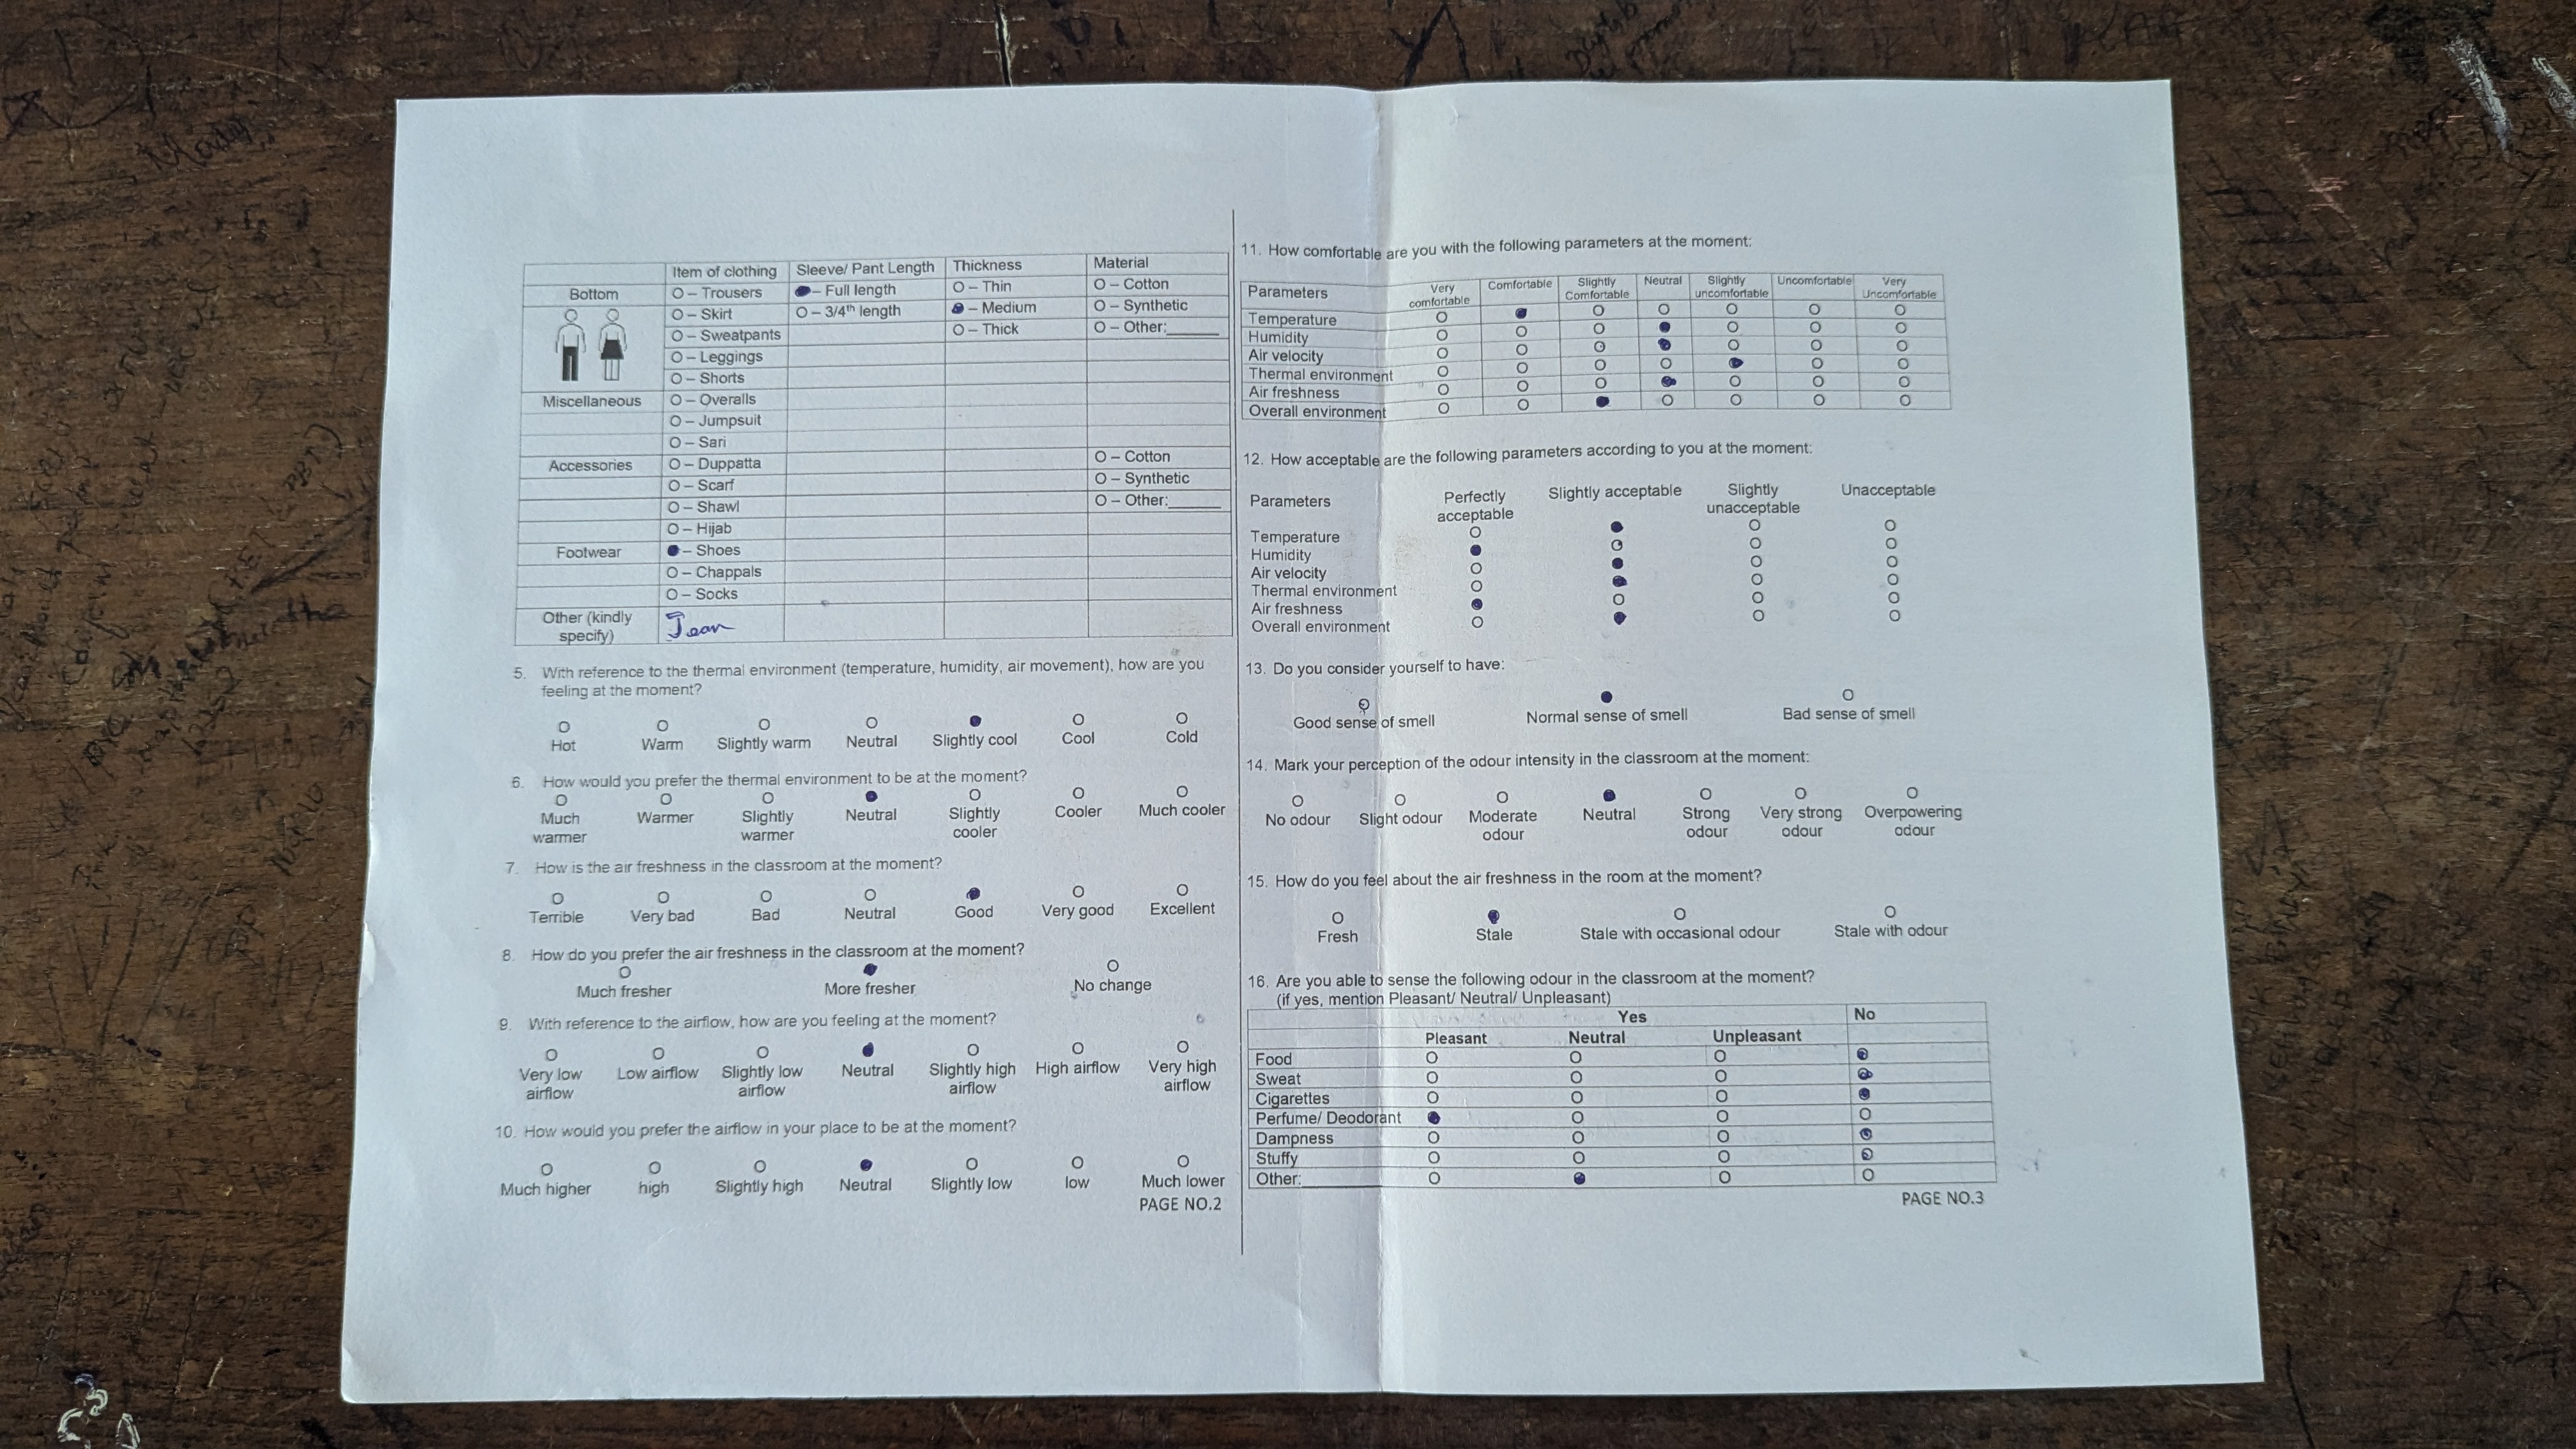 Item of clothing Sleeve/ Pant Length Thickness Material
Bottom O – Trousers ●– Full length O – Thin O – Cotton
O – Skirt O – 3/4th length ● – Medium O – Synthetic
O – Sweatpants O – Thick O – Other:______
O – Leggings
O – Shorts
Miscellaneous O – Overalls
O – Jumpsuit
O – Sari
Accessories O – Duppatta O – Cotton
O – Scarf O – Synthetic
O – Shawl O – Other:______
O – Hijab
Footwear ● – Shoes
O – Chappals
O – Socks
Other (kindly specify) Jean
5. With reference to the thermal environment (temperature, humidity, air movement), how are you
feeling at the moment?
O O O O ● O O
Hot Warm Slightly warm Neutral Slightly cool Cool Cold
6. How would you prefer the thermal environment to be at the moment?
O O O ● O O O
Much warmer Warmer Slightly warmer Neutral Slightly cooler Cooler Much cooler
7. How is the air freshness in the classroom at the moment?
O O O O ● O O
Terrible Very bad Bad Neutral Good Very good Excellent
8. How do you prefer the air freshness in the classroom at the moment?
O ● O
Much fresher More fresher No change
9. With reference to the airflow, how are you feeling at the moment?
O O O ● O O O
Very low airflow Low airflow Slightly low airflow Neutral Slightly high airflow High airflow Very high airflow
10. How would you prefer the airflow in your place to be at the moment?
O O O ● O O O
Much higher high Slightly high Neutral Slightly low low Much lower
PAGE NO.2
11. How comfortable are you with the following parameters at the moment:
Parameters Very comfortable Comfortable Slightly Comfortable Neutral Slightly uncomfortable Uncomfortable Very Uncomfortable
Temperature O ● O O O O O
Humidity O O O ● O O O
Air velocity O O O ● O O O
Thermal environment O O O O ● O O
Air freshness O O O ● O O O
Overall environment O O ● O O O O
12. How acceptable are the following parameters according to you at the moment:
Parameters Perfectly acceptable Slightly acceptable Slightly unacceptable Unacceptable
Temperature O ● O O
Humidity ● O O O
Air velocity O ● O O
Thermal environment O ● O O
Air freshness ● O O O
Overall environment O ● O O
13. Do you consider yourself to have:
O ● O
Good sense of smell Normal sense of smell Bad sense of smell
14. Mark your perception of the odour intensity in the classroom at the moment:
O O O ● O O O
No odour Slight odour Moderate odour Neutral Strong odour Very strong odour Overpowering odour
15. How do you feel about the air freshness in the room at the moment?
O ● O O
Fresh Stale Stale with occasional odour Stale with odour
16. Are you able to sense the following odour in the classroom at the moment?
(if yes, mention Pleasant/ Neutral/ Unpleasant)
Yes No
Pleasant Neutral Unpleasant
Food O O O ●
Sweat O O O ●
Cigarettes O O O ●
Perfume/ Deodorant ● O O O
Dampness O O O ●
Stuffy O O O ●
Other:__________ O ● O O
PAGE NO.3